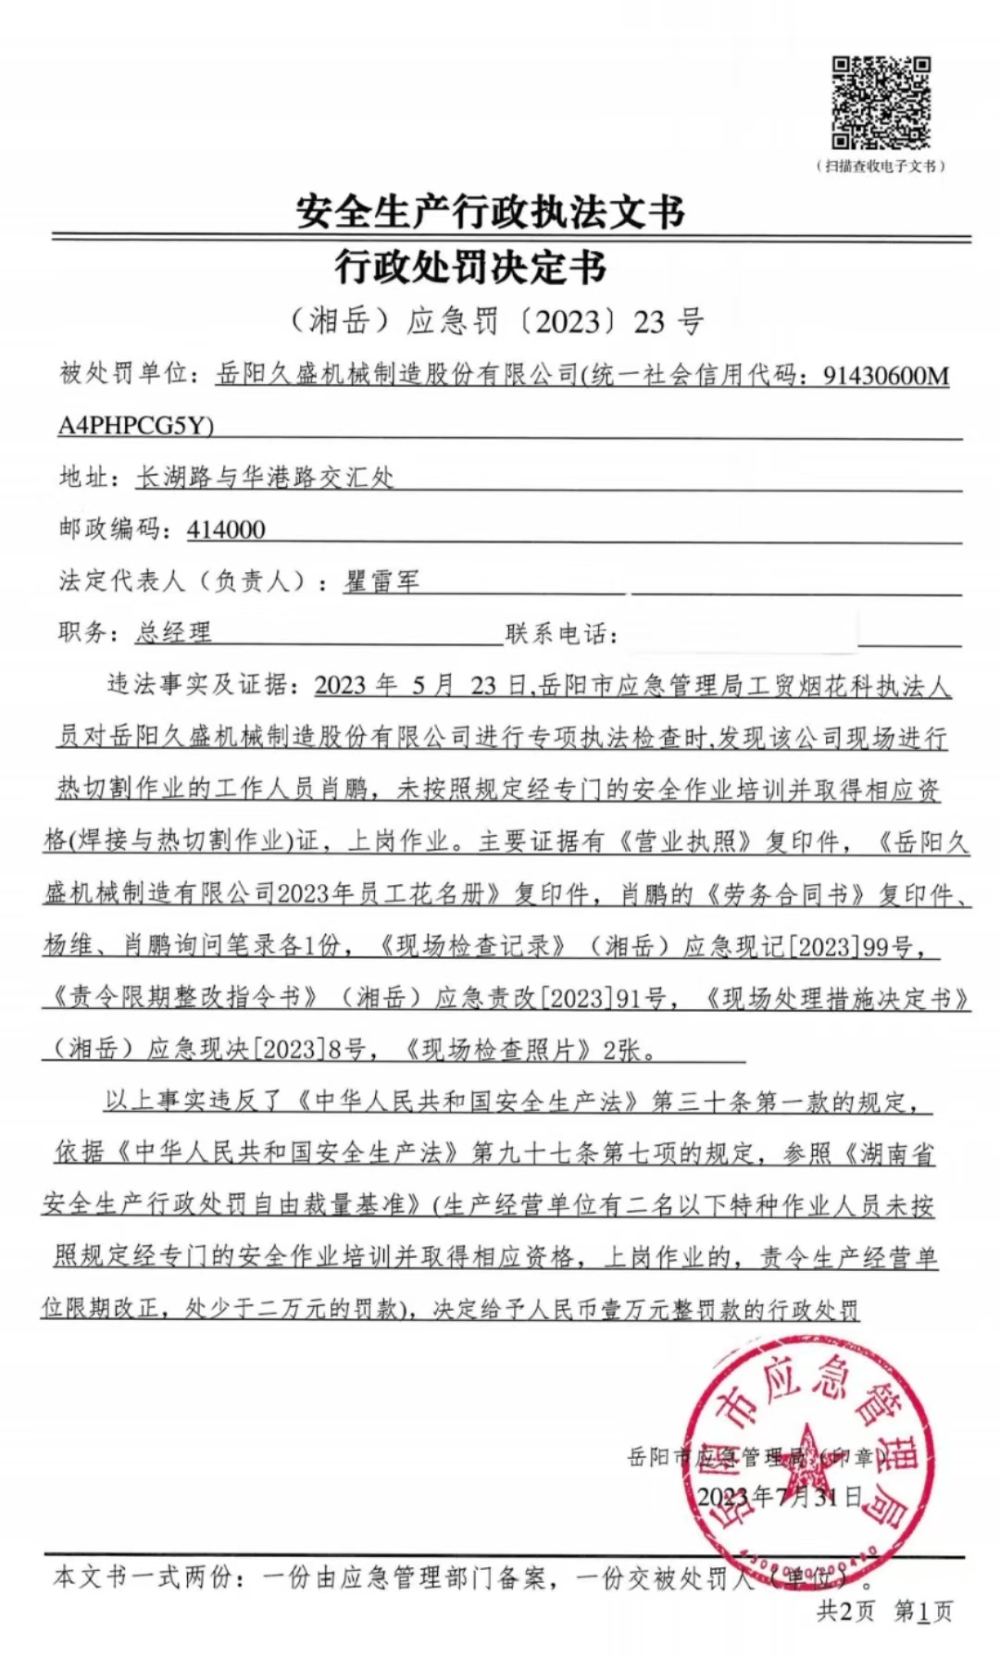 （扫描查收电子文书）
安全生产行政执法文书
行政处罚决定书
（湘岳）应急罚〔2023〕23 号
被处罚单位：岳阳久盛机械制造股份有限公司(统一社会信用代码：91430600M
A4PHPCG5Y)
地址：长湖路与华港路交汇处
邮政编码：414000
法定代表人（负责人）：瞿雷军
职务：总经理 联系电话：
违法事实及证据：2023 年 5 月 23 日,岳阳市应急管理局工贸烟花科执法人
员对岳阳久盛机械制造股份有限公司进行专项执法检查时,发现该公司现场进行
热切割作业的工作人员肖鹏，未按照规定经专门的安全作业培训并取得相应资
格(焊接与热切割作业)证，上岗作业。主要证据有《营业执照》复印件，《岳阳久
盛机械制造有限公司2023年员工花名册》复印件，肖鹏的《劳务合同书》复印件、
杨维、肖鹏询问笔录各1份，《现场检查记录》（湘岳）应急现记[2023]99号，
《责令限期整改指令书》（湘岳）应急责改[2023]91号，《现场处理措施决定书》
（湘岳）应急现决[2023]8号，《现场检查照片》2张。
以上事实违反了《中华人民共和国安全生产法》第三十条第一款的规定，
依据《中华人民共和国安全生产法》第九十七条第七项的规定，参照《湖南省
安全生产行政处罚自由裁量基准》(生产经营单位有二名以下特种作业人员未按
照规定经专门的安全作业培训并取得相应资格，上岗作业的，责令生产经营单
位限期改正，处少于二万元的罚款)，决定给予人民币壹万元整罚款的行政处罚
岳阳市应急管理局
岳阳市应急管理局（印章）
2023年7月31日
本文书一式两份：一份由应急管理部门备案，一份交被处罚人（单位）。
共2页 第1页